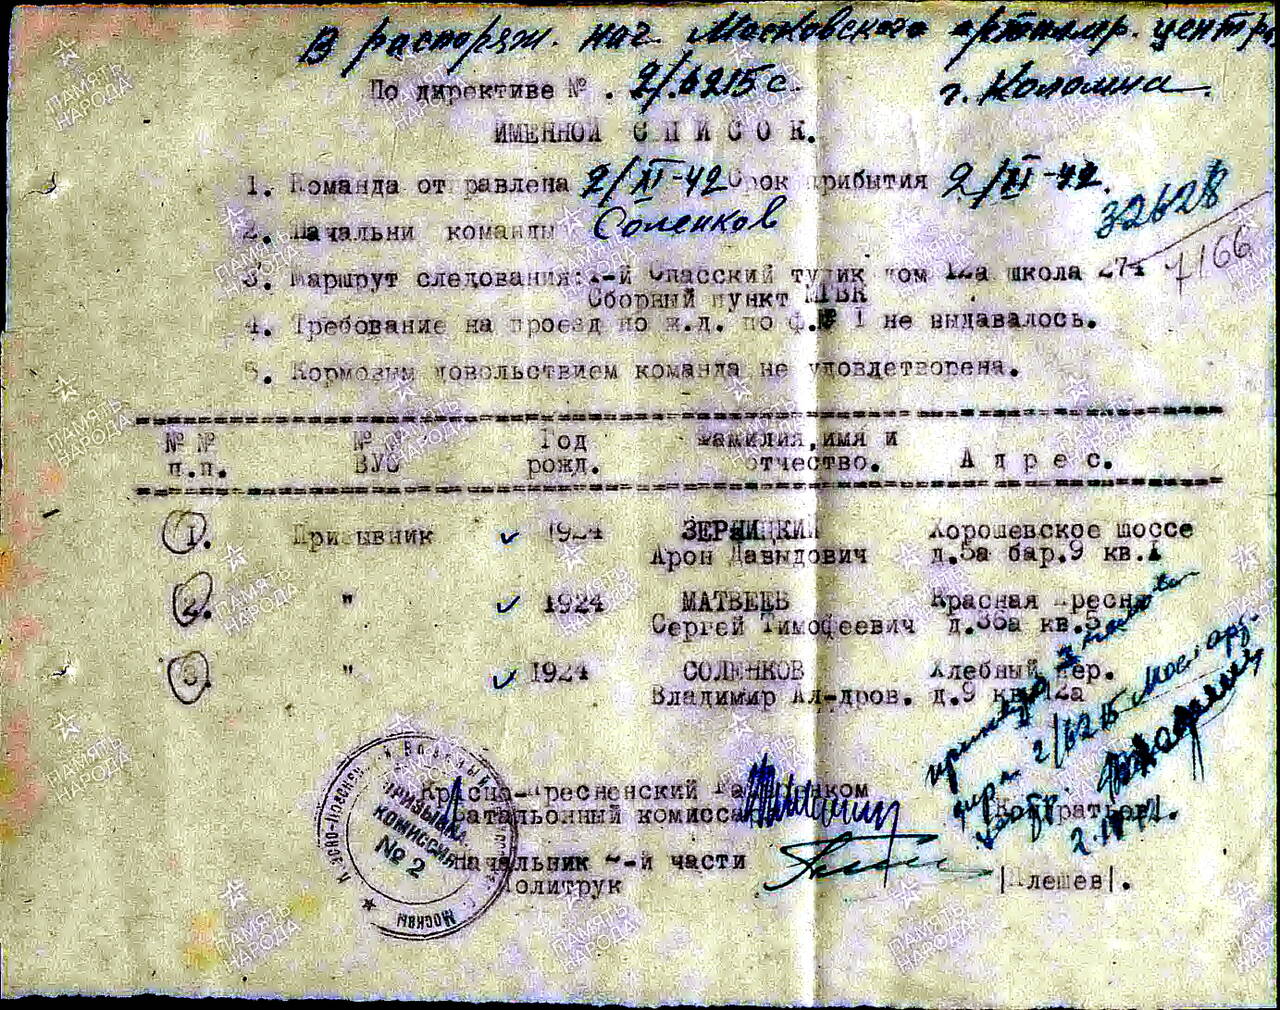 В распоряж. нач. Московского артполк. центра
По директиве № . 2/.6215с. г. Коломна.
ИМЕННОЙ СПИСОК.
1. Команда отправлена 2/XI-42 Срок прибытия 2/XI-42.
32628
2. Начальник команды Соленков
7166
3. Маршрут следования: -й Спасский тупик дом 12а школа 274
Сборный пункт МГВК
4. Требование на проезд по ж.д. по ф.№ 1 не выдавалось.
5. Кормовым довольствием команда не удовдетворена.
№ № № Год Фамилия,имя и
п.п. ВУС рожд. отчество. Адрес.
1. Призывник 1924 ЗЕРНИЦКИЙ Хорошевское шоссе
Арон Давыдович д.5а бар.9 кв.1
2. " 1924 МАТВЕЕВ Красная Пресня
Сергей Тимофеевич д.36а кв.5
3. " 1924 СОЛЕНКОВ Хлебный пер.
Владимир Ал-дров. д.9 кв.12а
Красно-Пресненский Райвоенком
Батальонный комиссар |Кондратьев|.
Начальник -й части
Политрук |Плешев|.
ПРИЗЫВН. КОМИССИЯ № 2
г. Москвы
2/6215 Моск арт.
ПАМЯТЬ НАРОДА